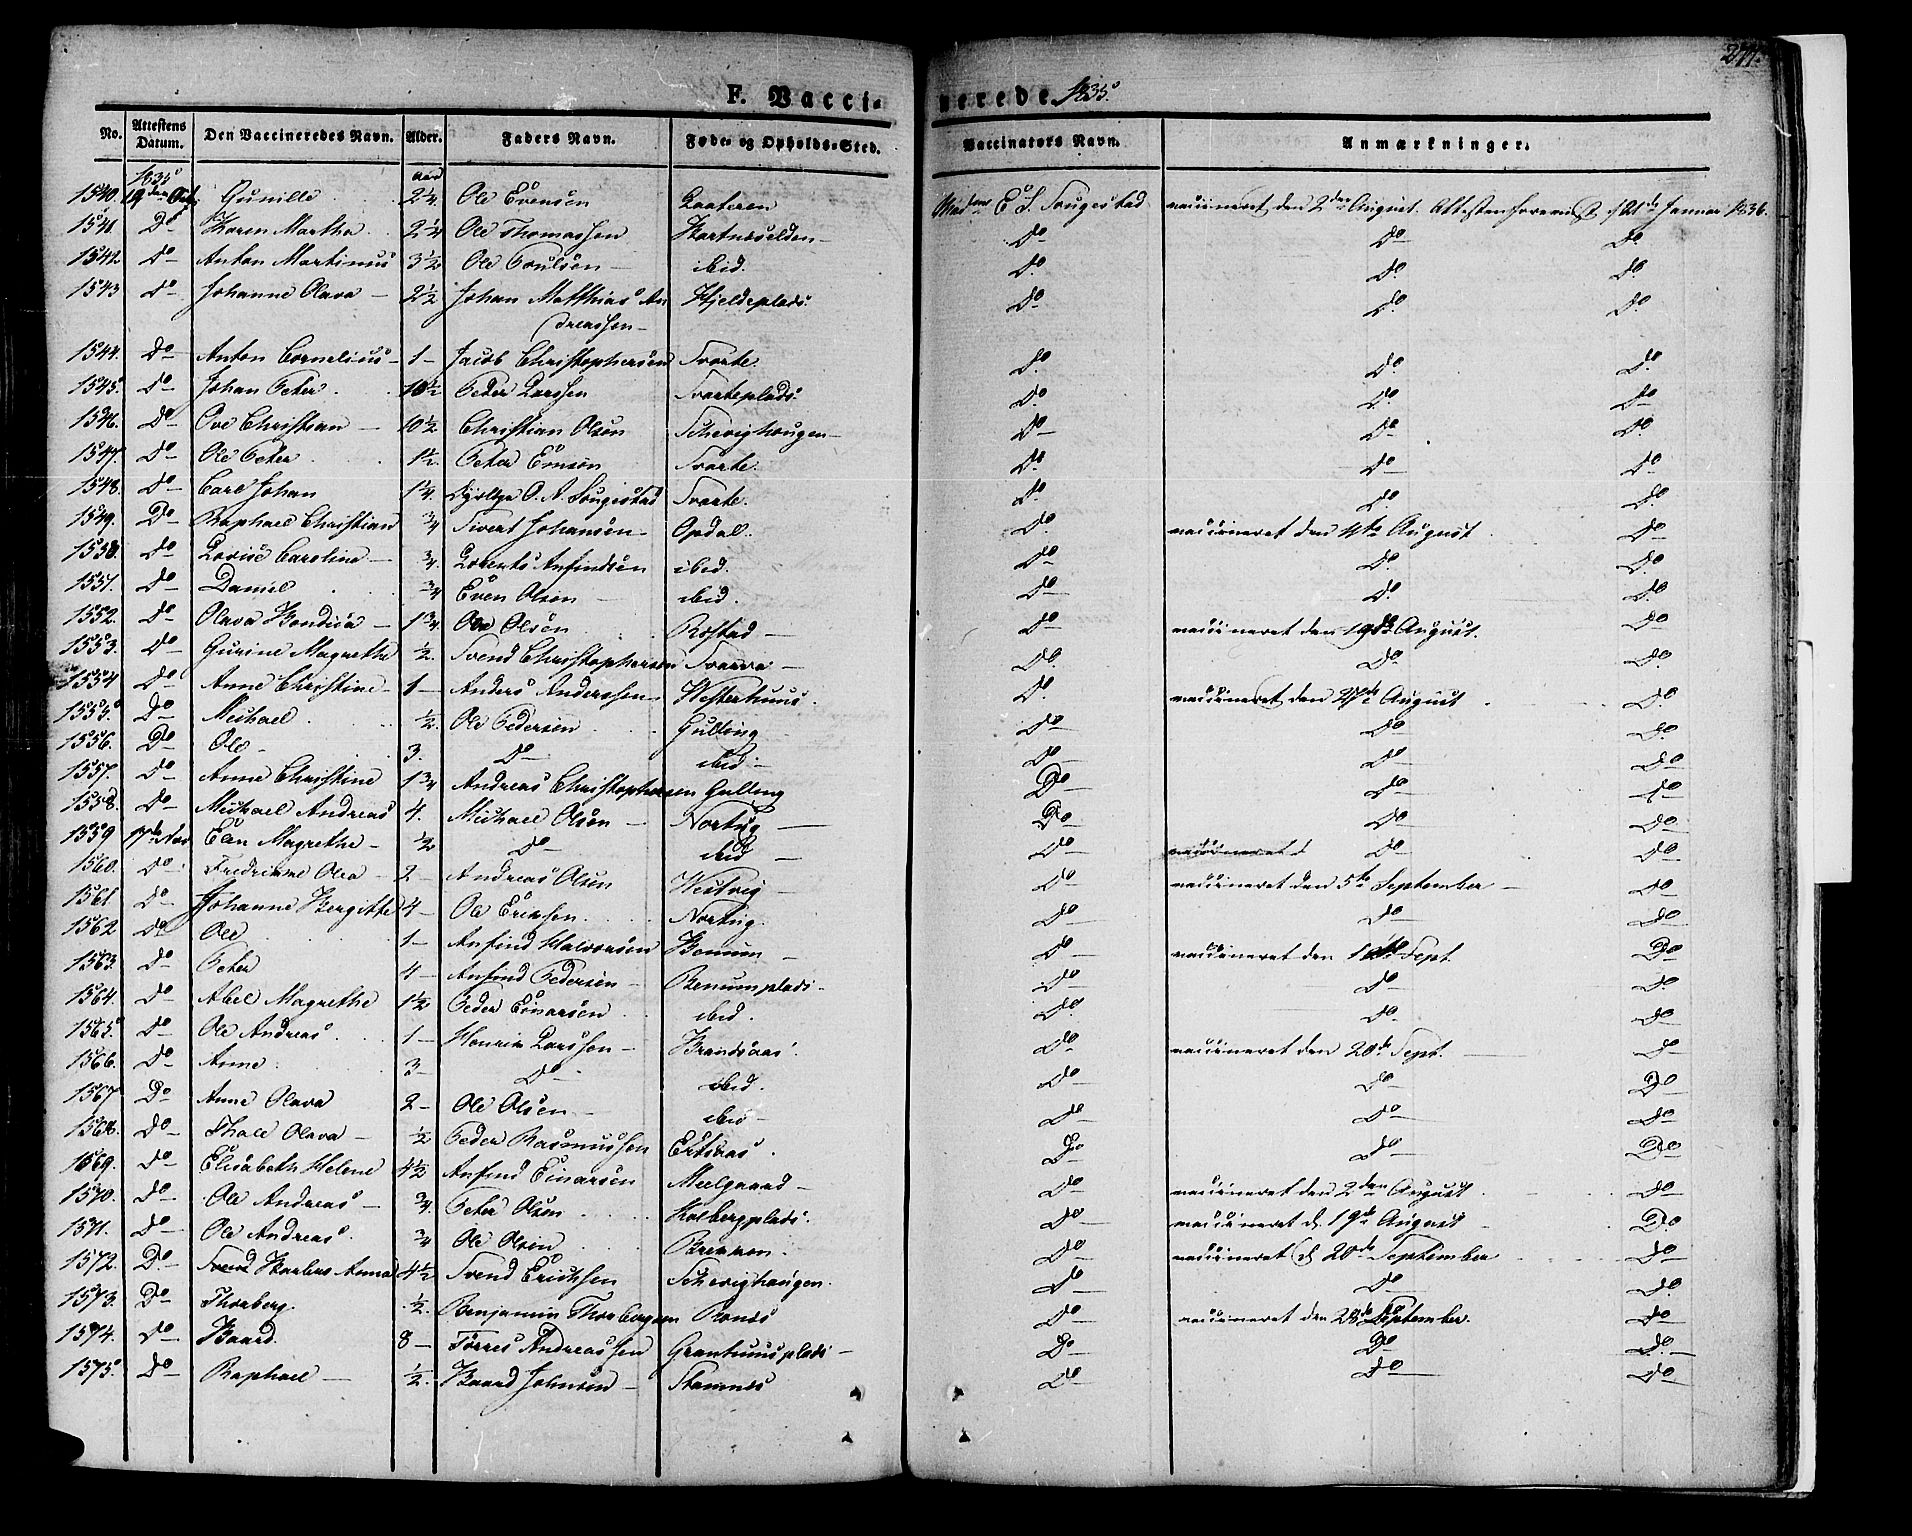 F. Vacci- nerede 1835. 277.
No. Attestens Datum. Den Vaccineredes Navn. Alder. Faders Navn. Føde- og Opholds-Sted. Vaccinators Navn. Anmærkninger.
1835 Aar
1540. 19den Gunille 2¼ Ole Evensen E S. vaccineret den 2den August. Attesten 21de Januar 1836.
1541 Do Karen Martha 2¼ Ole Thomassen Do Do Do
1542 Do Anton Martinus 3½ Ole Poulsen ibid. Do Do Do
1543 Do Johanne Olava 2½ Johan Matthias An Hjeldeplads. Do Do Do
dreassen
1544. Do Anton Cornelius 1 Jacob Christophersen Tvarte. Do Do Do
1545. Do Johan Peter 10½ Peder Larssen Tvarteplads Do Do Do
1546. Do Ove Christian 10½ Christian Olsen Schevighaugen Do Do Do
1547. Do Ole Peter 1½. Peter Tvarte. Do Do Do
1548. Do Carl Johan 1¼ O. A. Tvarte. Do Do Do
1549. Do Raphael Christian ¾ Sivert Johansen Opdal. Do vaccineret den August Do
1550. Do Lovise Caroline ¾ Lorents Anfindsen ibid. Do Do Do
1551. Do Daniel ¾ Even Olsen ibid. Do Do Do
1552. Do Olava 1¾ Ole Olsen Rostad Do vaccineret den 19de August. Do
1553. Do Gurine Magrethe ½. Svend Christophersen Do Do Do
1554 Do Anne Christine 1 Anders Anderssen Westerhuus. Do vaccineret den 27de August Do
1555. Do Michael ½. Ole Pedersen Gulling Do Do Do
1556. Do Ole 3. Do ibid Do Do Do
1557. Do Anne Christine 1¾ Andreas Christophersen Gulling Do Do Do
1558. Do Michael Andreas 4. Michael Olsen Nortug Do Do Do
1559 17de Nov Elen Magrethe ½ Do ibid Do vaccineret d Do Do
1560. Do Fredrikke Olea 2 Andreas Olsen Westvig Do vaccineret den 5te September Do
1561 Do Johanne Bergitte 4 Ole Eriksen Nortug. Do Do Do
1562 Do Ole 1 Anfind Halvorsen Benum Do vaccineret den Sept. Do
1563. Do Peter 4 Anfind Pedersen Benumplads Do Do Do
1564. Do Abel Magrethe 1½ Peder Einarsen ibid. Do Do Do
1565. Do Ole Andreas 1 Henrik Larssen Brandsaas Do vaccineret den 20de Sept. Do
1566. Do Anne 3 Do ibid. Do Do Do
1567 Do Anne Olava 2 Ole Olsen ibid Do Do Do
1568. Do Thale Olava ½ Peder Rasmussen Ertsaas. Do Do Do
1569. Do Elisabeth Helene 4½ Anfind Einarsen Meelgaard Do vaccineret den 2den August Do
1570. Do Ole Andreas ¾ Peter Olsen Holbergplads. Do vaccineret d 19de August Do
1571. Do Ole Andreas ¾ Ole Olsen Brekken. Do vaccineret d 20de September Do
1572. Do Anna 4½ Svend Erichsen Schevighaugen. Do Do Do
1573. Do Thorberg ½. Benjamin Thorbergsen Do vaccineret den 28de September. Do
1574. Do Baard. 8 Torres Andreassen Granhuusplads Do Do Do
1575. Do Raphael ½. Baard Johnsen Stamnes Do Do Do